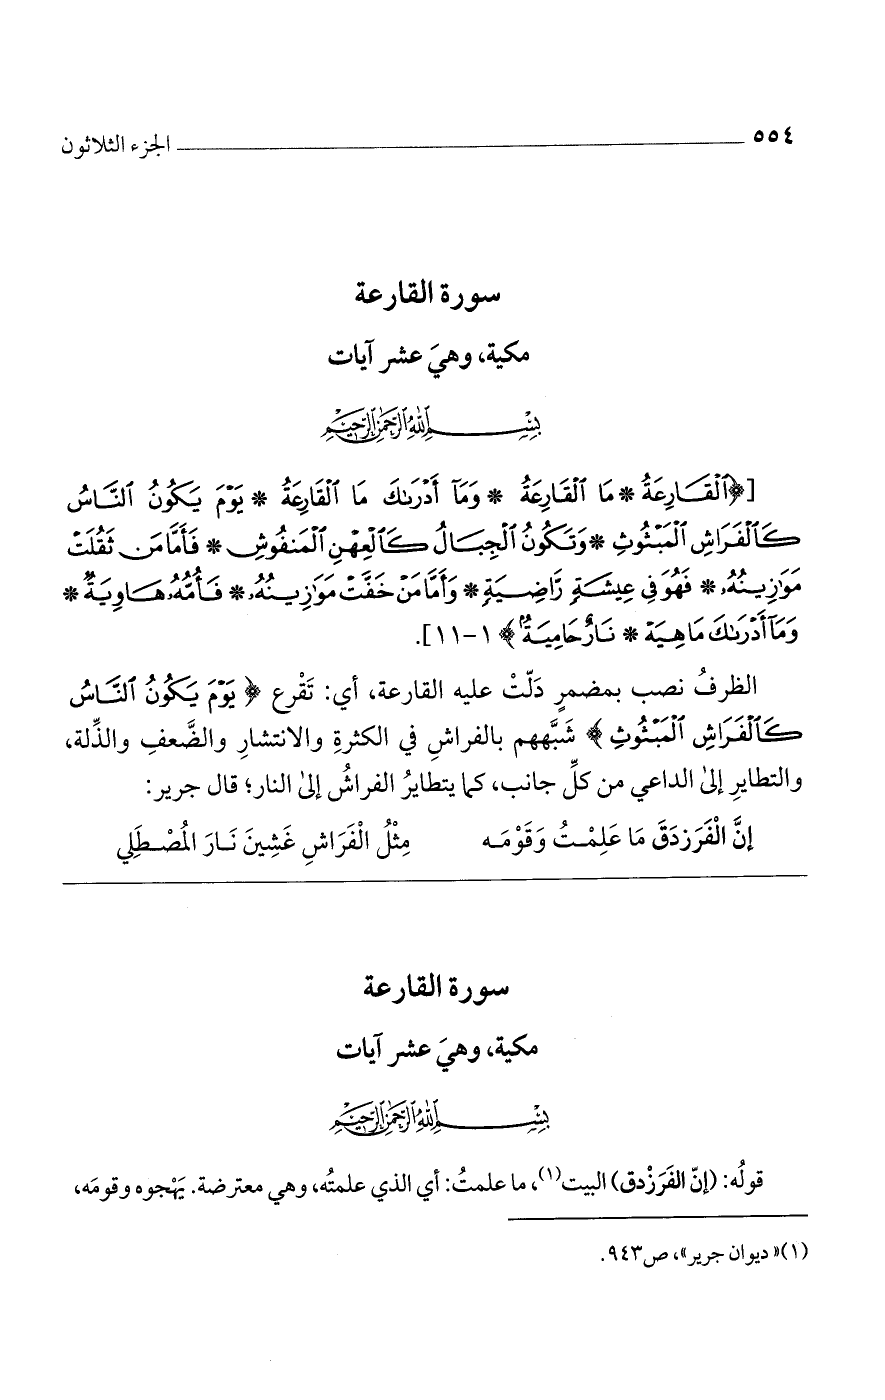 ٥٥٤ الجزء الثلاثون
سورة القارعة
مكية، وهيَ عشر آيات
بِسْمِ ٱللَّهِ ٱلرَّحْمَٰنِ ٱلرَّحِيمِ
[﴿ٱلْقَارِعَةُ * مَا ٱلْقَارِعَةُ * وَمَآ أَدْرَىٰكَ مَا ٱلْقَارِعَةُ * يَوْمَ يَكُونُ ٱلنَّاسُ
كَٱلْفَرَاشِ ٱلْمَبْثُوثِ * وَتَكُونُ ٱلْجِبَالُ كَٱلْعِهْنِ ٱلْمَنفُوشِ * فَأَمَّا مَن ثَقُلَتْ
مَوَٰزِينُهُۥ * فَهُوَ فِي عِيشَةٍ رَّاضِيَةٍ * وَأَمَّا مَنْ خَفَّتْ مَوَٰزِينُهُۥ * فَأُمُّهُۥ هَاوِيَةٌ *
وَمَآ أَدْرَىٰكَ مَا هِيَهْ * نَارٌ حَامِيَةٌۢ﴾ ١-١١].
الظرفُ نصب بمضمرٍ دَلّتْ عليه القارعة، أي: تَقْرع ﴿يَوْمَ يَكُونُ ٱلنَّاسُ
كَٱلْفَرَاشِ ٱلْمَبْثُوثِ﴾ شَبَّههم بالفراشِ في الكثرةِ والانتشارِ والضَّعفِ والذِّلة،
والتطايرِ إلىٰ الداعي من كلِّ جانب، كما يتطايرُ الفراشُ إلىٰ النار؛ قال جرير:
إنَّ الْفَرَزدَقَ مَا عَلِمْتُ وَقَوْمَـه مِثْلُ الْفَرَاشِ غَشِينَ نَـارَ المُصْطَلِي
سورة القارعة
مكية، وهيَ عشر آيات
بِسْمِ ٱللَّهِ ٱلرَّحْمَٰنِ ٱلرَّحِيمِ
قولُه: (إنّ الفَرَزْدق) البيت(١)، ما علمتُ: أي الذي علمتُه، وهي معترضة. يَهْجوه وقومَه،
(١) «ديوان جرير»، ص٩٤٣.